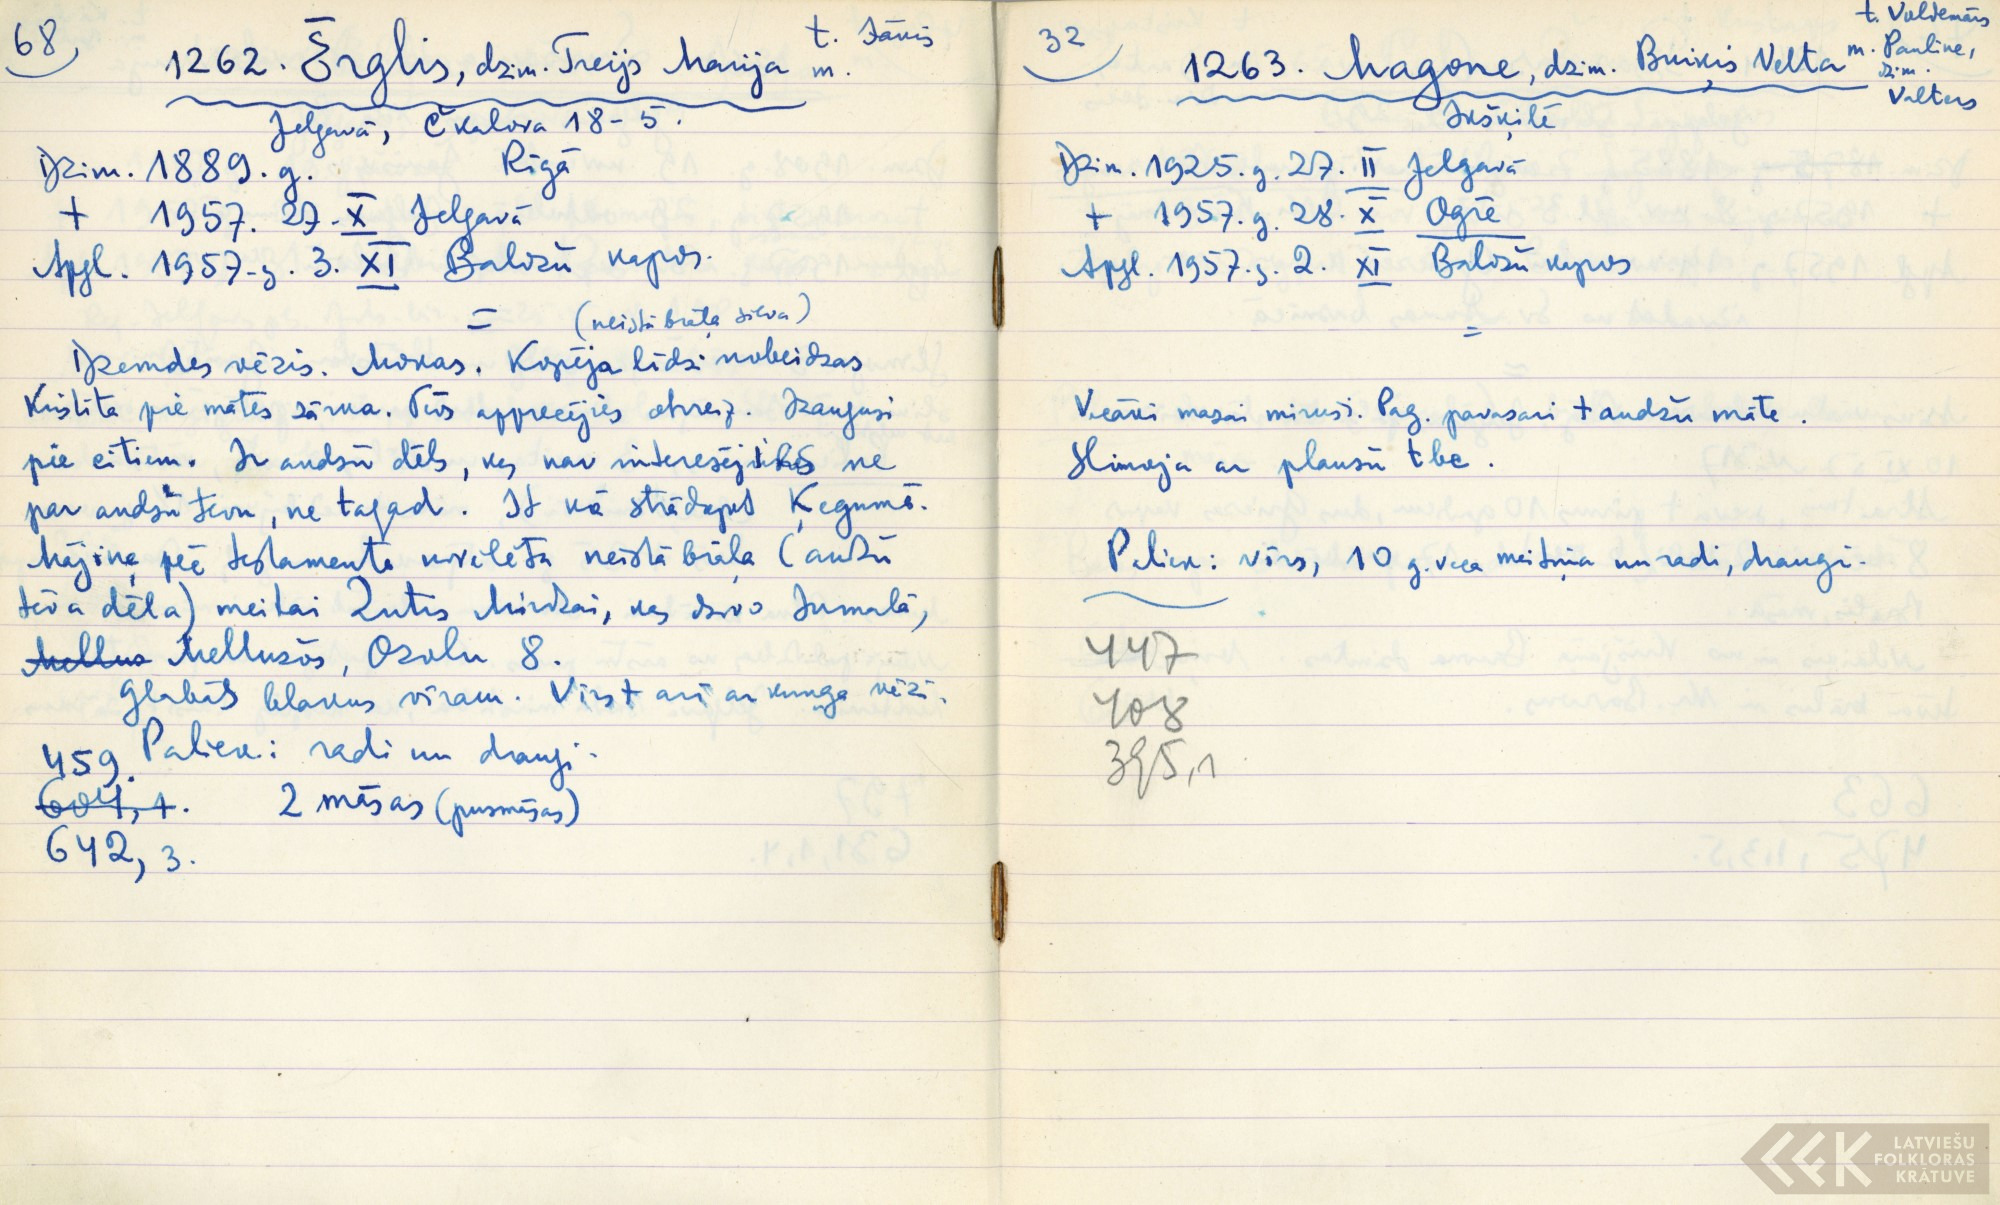 68,
1262. Ērglis, dzim. Treijs Marija
t. Jānis
m.
Jelgavā, Čkalova 18-5.
Dzim. 1889. g. Rīgā
+ 1957. 29. X Jelgavā
Apgl. 1957. g. 3. XI Baložu kapos.
= (neīstā brāļa sieva)
Dzemdes vēzis. Mokas. Kopēja līdzi nobeidzas
Kristīta pie mātes zārka. Tēvs apprecējies otrreiz. Izaugusi
pie citiem. Ir audžu dēls, kas nav interesējies ne
par audžu tēvu, ne tagad. It kā strādājot Ķegumā.
Mājiņa pēc testamenta novēlēta neīstā brāļa (audžu
tēva dēla) meitai Zutis Mirdzai, kas dzīvo Jūrmalā,
Mellus Mellužos, Ozolu 8.
Glabās blakus vīram. Vīrs + arī ar kuņģa vēzi.
459. Paliek: radi un draugi.
604, 1. 2 māsas (pusmāsas)
642, 3.
32
1263. Magone, dzim. Briķis Velta
t. Voldemārs
m. Pauline,
dzim.
Valters
Ikšķilē
Dzim. 1925. g. 27. II Jelgavā
+ 1957. g. 28. X Ogrē
Apgl. 1957. g. 2. XI Baložu kapos
=
Vecāki mazai miruši. Pag. pavasarī + audžu māte.
Slimoja ar plaušu tbc.
Paliek: vīrs, 10 g. veca meitiņa un radi, draugi.
447
408
395,1
LATVIEŠU
FOLKLORAS
KRĀTUVE